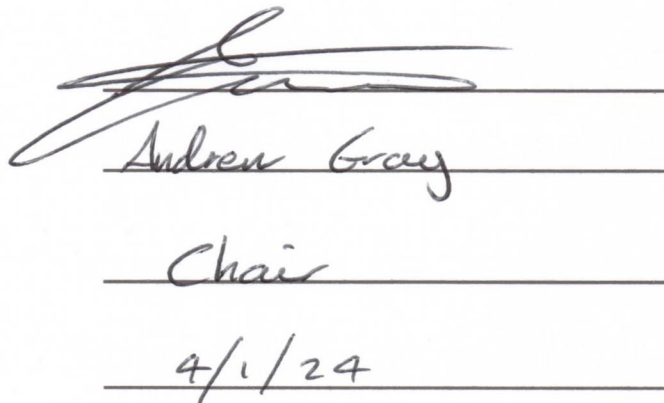 Andrew Gray
Chair
4/1/24